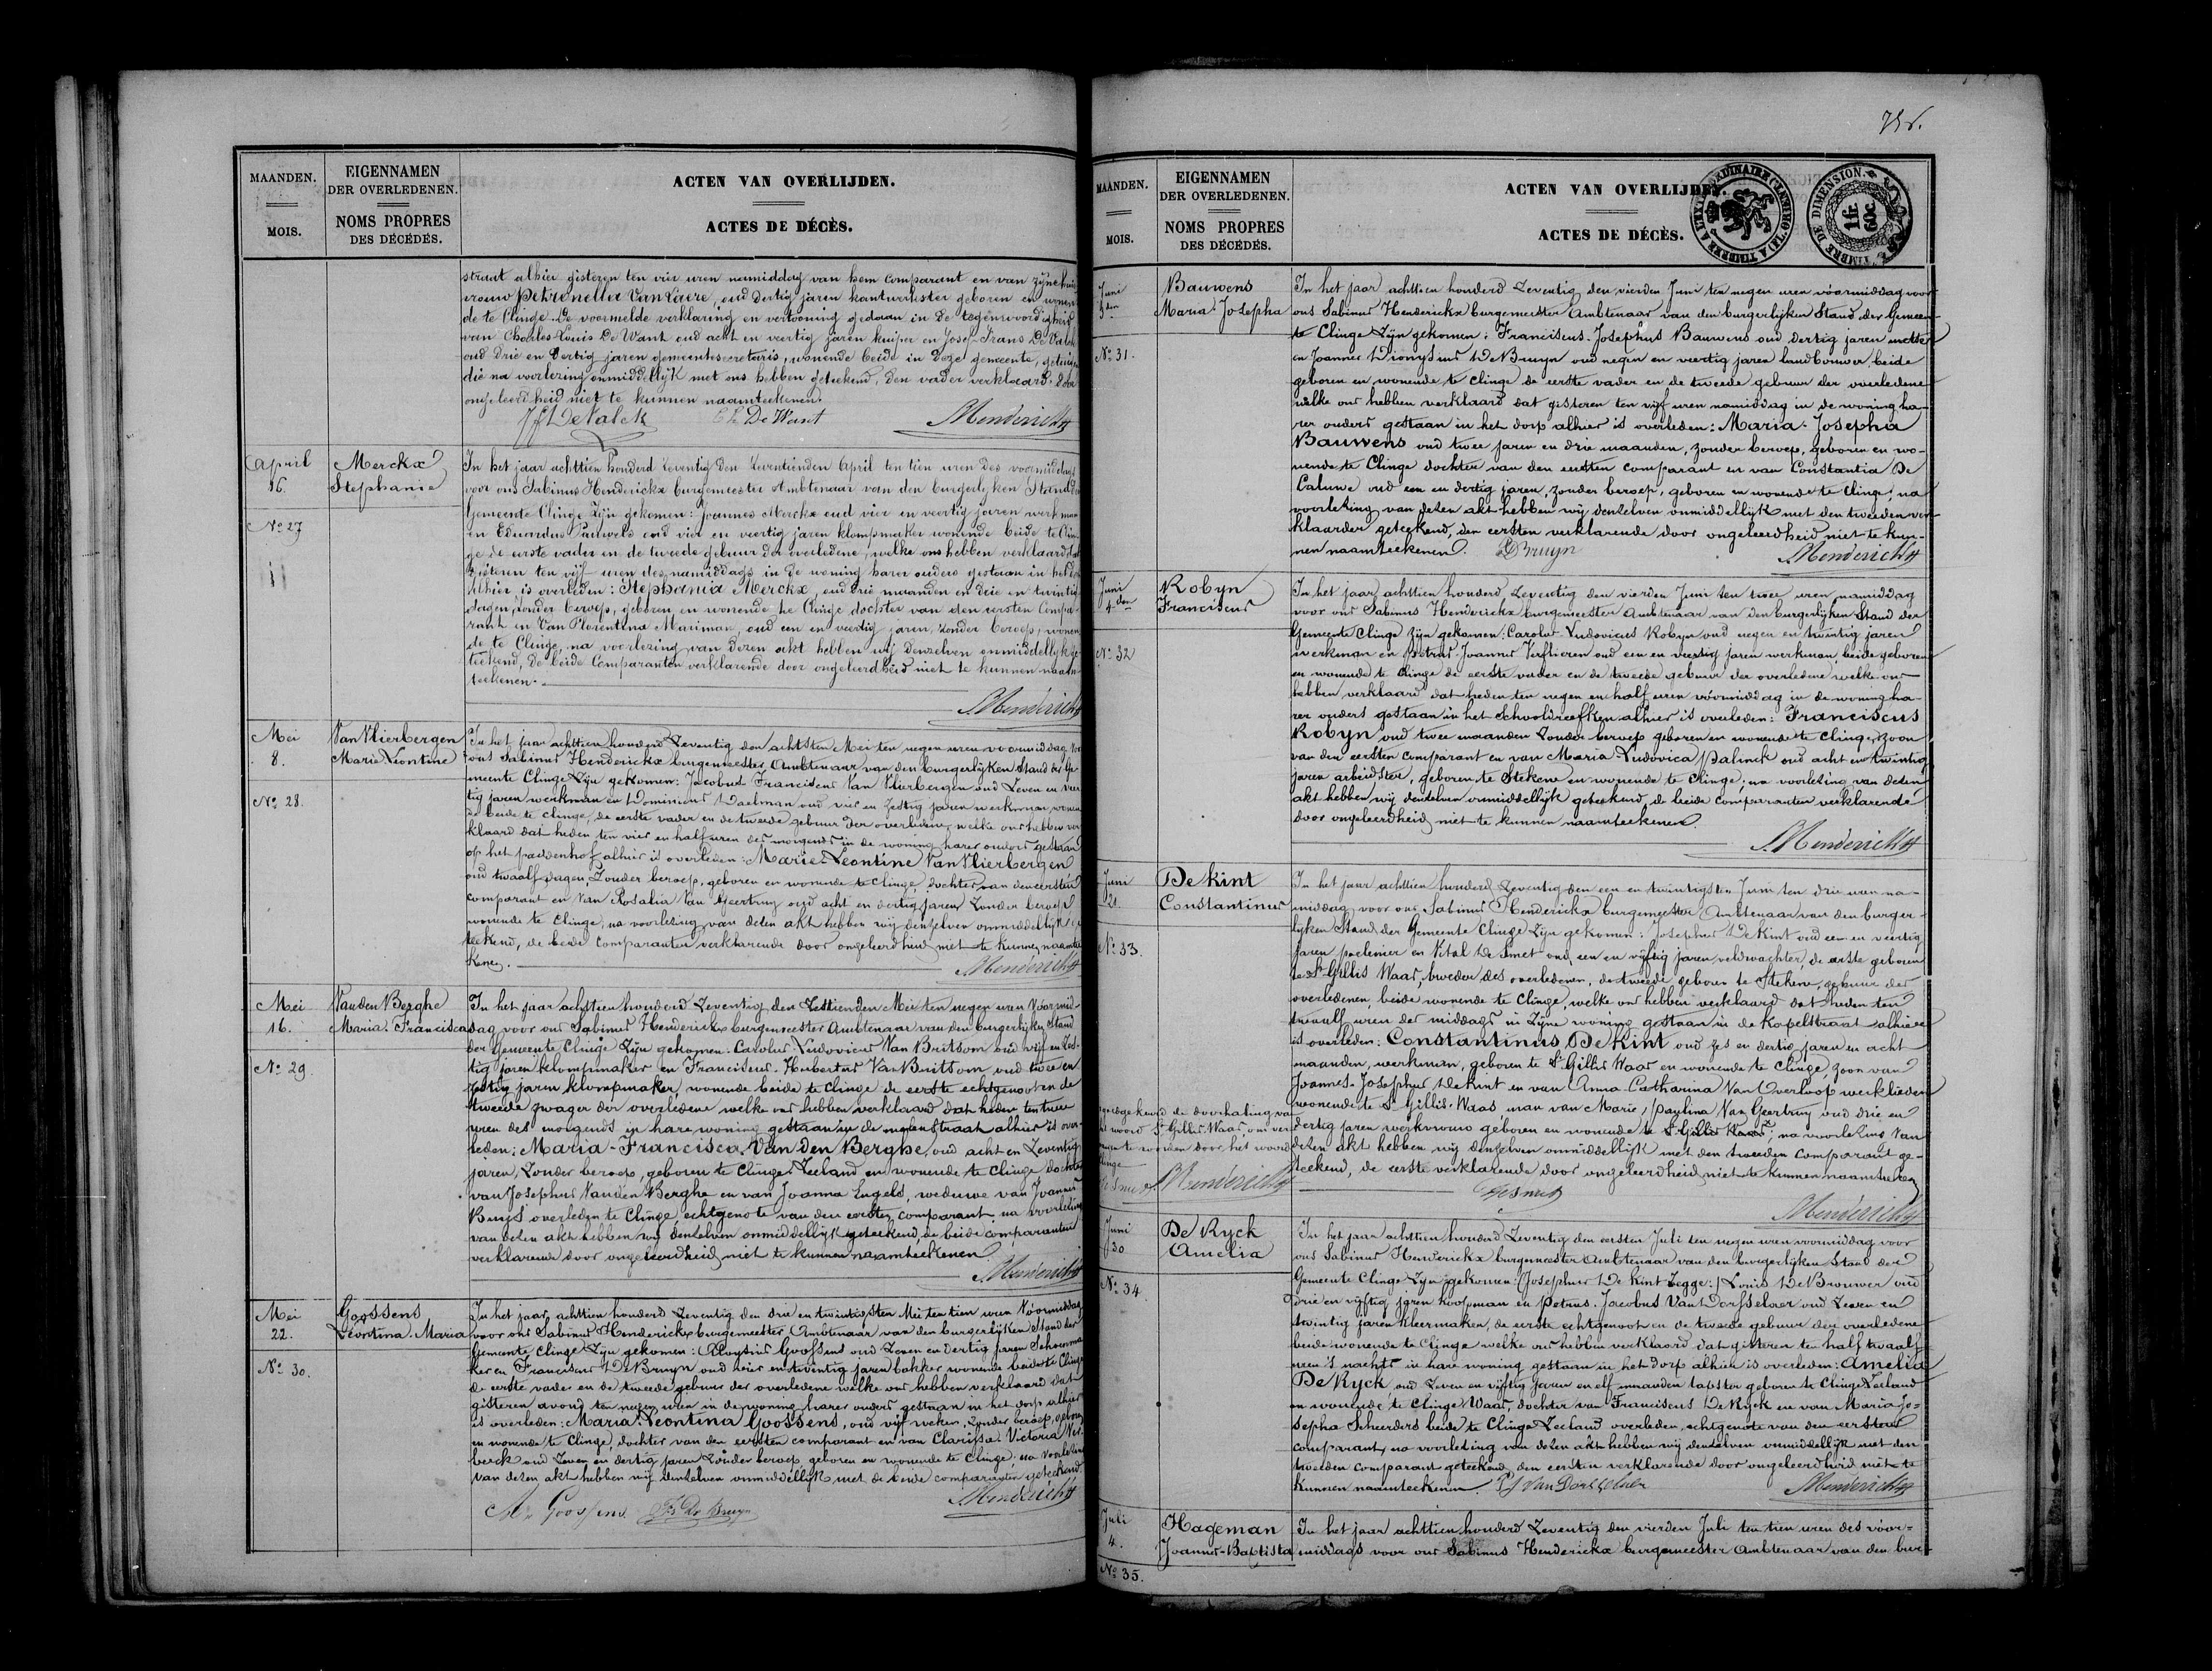 MAANDEN.
MOIS.
EIGENNAMEN
DER OVERLEDENEN.
NOMS PROPRES
DES DÉCÉDÉS.
ACTEN VAN OVERLIJDEN.
ACTES DE DÉCÈS.
straat alhier gisteren ten vier uren namiddag van hem comparant en van zijne huis
vrouw Petronella Van Laere, oud dertig jaren kantwerkster geboren en wonen
de te Clinge. De voormelde verklaring en vertooning gedaan in de tegenwoordigheid
van Charles Louis De Want oud acht en veertig jaren kuiper en Josef Frans De Valck
oud drie en dertig jaren gemeentesecretaris, wonende beide in deze gemeente, getuigen
die na voorlezing onmiddellijk met ons hebben geteekend, den vader verklaard door
ongeleerdheid niet te kunnen naamteekenen.
JF DeValck Ch DeWant SHenderickx
April
16.
No 27
Merckx
Stephanie
In het jaar achttien honderd zeventig den zeventienden April ten tien uren des voormiddags
voor ons Sabinus Henderickx burgemeester Ambtenaar van den burgerlyken Stand der
Gemeente Clinge zijn gekomen: Joannes Merckx oud vier en veertig jaren werkman
en Eduardus Pauwels oud vier en veertig jaren klompmaker wonende beide te Clin-
ge de eerste vader en de tweede gebuur der overledene, welke ons hebben verklaard dat
gisteren ten vijf uren des namiddags in de woning harer ouders gestaan in het dorp
alhier is overleden: Stephania Merckx, oud drie maanden en drie en twintig
dagen, zonder beroep, geboren en wonende te Clinge dochter van den eersten Compa-
rant en van Florentina Mariman, oud een en veertig jaren, zonder beroep, wonen
de te Clinge, na voorlezing van dezen akt hebben wij denzelven onmiddellyk ge-
teekend, de beide Comparanten verklarende door ongeleerdheid niet te kunnen naam-
teekenen.
SHenderickx
Mei
8.
No 28.
Van Vlierbergen
Marie Leontine
In het jaar achttien honderd zeventig den achtsten Mei ten negen uren voormiddag voor
ons Sabinus Henderickx burgemeester Ambtenaar van den burgerlijken Stand der Ge-
meente Clinge zijn gekomen: Jacobus Franciscus Van Vlierbergen oud zeven en veer
tig jaren werkman en Dominicus Daelman oud vier en zestig jaren werkman, wonen
de beide te Clinge, de eerste vader en de tweede gebuur der overledene, welke ons hebben ver
klaard dat heden ten vier en half uren des morgends in de woning harer ouders gestaan
op het paddenhof alhier is overleden: Marie-Leontine Van Vlierbergen
oud twaalf dagen, zonder beroep, geboren en wonende te Clinge, dochter van den eersten
comparant en van Rosalia Van Geertruy oud acht en dertig jaren zonder beroep
wonende te Clinge, na voorlezing van dezen akt hebben wij denzelven onmiddellijk ge
teekend, de beide comparanten verklarende door ongeleerdheid niet te kunnen naamtee
kenen.
SHenderickx
Mei
16.
No 29.
Van den Berghe
Maria-Francisca
In het jaar achttien honderd zeventig den zestienden Mei ten negen uren voormid-
dag voor ons Sabinus Henderickx burgemeester Ambtenaar van den burgerlijken Stand
der Gemeente Clinge zijn gekomen: Carolus Ludovicus Van Britsom oud vijf en zes-
tig jaren klompmaker en Franciscus-Hubertus Van Britsom, oud twee en
zestig jaren klompmaker, wonende beide te Clinge de eerste echtgenoot en de
tweede zwager der overledene welke ons hebben verklaard dat heden ten twee
uren des morgends in hare woning gestaan in de molenstraat alhier is over-
leden: Maria-Francisca Van den Berghe, oud acht en zeventig
jaren, zonder beroep, geboren te Clinge Zeeland en wonende te Clinge dochter
van Josephus Van den Berghe en van Joanna Engels, weduwe van Joannes
Buys overleden te Clinge echtgenote van den eersten comparant, na voorlezing
van dezen akt hebben wij denzelven onmiddellijk geteekend, de beide comparanten
verklarende door ongeleerdheid niet te kunnen naamteekenen
SHenderickx
Mei
22.
No 30.
Goossens
Leontina-Maria
In het jaar achttien honderd zeventig den drie en twintigsten Mei ten tien uren voormiddag
voor ons Sabinus Henderickx burgemeester Ambtenaar van den burgerlijken Stand der
Gemeente Clinge zijn gekomen: Aloysius Goossens oud zeven en dertig jaren schoenma
ker en Franciscus De Bruyn oud vier en twintig jaren bakker wonende beide te Clinge
de eerste vader en de tweede gebuur der overledene welke ons hebben verklaard dat
gisteren avond ten negen uren in de woning harer ouders gestaan in het dorp alhier
is overleden: Maria Leontina Goossens, oud vijf weken, zonder beroep, geboren
en wonende te Clinge, dochter van den eersten comparant en van Clarissa-Victoria Ver-
berck oud zeven en dertig jaren zonder beroep geboren en wonende te Clinge; na voorlezing
van dezen akt hebben wij denzelven onmiddellijk met de beide comparanten geteekend.
Goossens Fs De Bruyn SHenderickx
MAANDEN.
MOIS.
EIGENNAMEN
DER OVERLEDENEN.
NOMS PROPRES
DES DÉCÉDÉS.
ACTEN VAN OVERLIJDEN.
ACTES DE DÉCÈS.
TIMBRE DE DIMENSION.
1 fr.
60 c.
Juni
3den
No 31.
Bauwens
Maria-Josepha
In het jaar achttien honderd zeventig den vierden Juni ten negen uren voormiddag voor
ons Sabinus Henderickx burgemeester Ambtenaar van den burgerlijken Stand der Gemeen-
te Clinge zijn gekomen: Franciscus-Josephus Bauwens oud dertig jaren metser
en Joannes Dionysius De Bruyn oud negen en veertig jaren landbouwer, beide
geboren en wonende te Clinge de eerste vader en de tweede gebuur der overledene
welke ons hebben verklaard dat gisteren ten vijf uren namiddag in de woning ha-
rer ouders gestaan in het dorp alhier is overleden: Maria-Josepha
Bauwens oud twee jaren en drie maanden, zonder beroep, geboren en wo-
nende te Clinge dochter van den eersten comparant en van Constantia De
Caluwe oud een en dertig jaren, zonder beroep, geboren en wonende te Clinge; na
voorlezing van dezen akt hebben wij denzelven onmiddellijk met den tweeden ver-
klaarder geteekend, den eersten verklarende door ongeleerdheid niet te kun-
nen naamteekenen. DBruyn SHenderickx
Juni
4den
No 32
Robyn
Franciscus
In het jaar achttien honderd zeventig den vierden Juni ten twee uren namiddag
voor ons Sabinus Henderickx burgemeester Ambtenaar van den burgerlijken Stand der
Gemeente Clinge zijn gekomen: Carolus-Ludovicus Robyn oud negen en twintig jaren
werkman en Petrus Joannes Verstioren oud een en veertig jaren werkman, beide geboren
en wonende te Clinge de eerste vader en de tweede gebuur der overledene welke ons
hebben verklaard dat heden ten negen en half uren voormiddag in de woning ha-
rer ouders gestaan in het Schooldreefken alhier is overleden: Franciscus
Robyn oud twee maanden zonder beroep geboren en wonende te Clinge, zoon
van den eersten comparant en van Maria-Ludovica Palinck oud acht en twintig
jaren arbeidster, geboren te Stekene en wonende te Clinge; na voorlezing van dezen
akt hebben wij denzelven onmiddellijk geteekend, de beide comparanten verklarende
door ongeleerdheid niet te kunnen naamteekenen.
SHenderickx
Juni
21.
No 33.
De Kint
Constantinus
In het jaar achttien honderd zeventig den een en twintigsten Juni ten drie uren na-
middag voor ons Sabinus Henderickx burgemeester Ambtenaar van den burger-
lijken Stand der Gemeente Clinge zijn gekomen: Josephus De Kint oud een en veertig
jaren poelenier en Vital De Smet oud een en vijftig jaren veldwachter, de eerste geboren
te St Gillis Waas, broeder des overledenen, de tweede geboren te Stekene, gebuur der
overledenen, beide wonende te Clinge, welke ons hebben verklaard dat heden ten
twaalf uren der middags in zijne woning gestaan in de Kapelstraat alhier
is overleden: Constantinus De Kint oud zes en dertig jaren en acht
maanden, werkman, geboren te St Gillis Waas en wonende te Clinge, zoon van
Joannes-Josephus De Kint en van Anna-Catharina Van Overloop werklieden
wonende te St Gillis-Waas, man van Marie, Paulina Van Geertruy oud drie en
dertig jaren werkvrouw geboren en wonende te St Gillis Waas; na voorlezing van
dezen akt hebben wij denzelven onmiddellijk met den tweeden comparant ge-
teekend, de eerste verklarende door ongeleerdheid niet te kunnen naamteeken
goedgekeurd de doorhaling van
het woord St Gillis Waas om ver
te worden door het woord
Clinge
DeSmet SHenderickx
DeSmet
SHenderickx
Juni
30
No 34.
De Ryck
Amelia
In het jaar achttien honderd zeventig den eersten Juli ten negen uren voormiddag voor
ons Sabinus Henderickx burgemeester Ambtenaar van den burgerlijken Stand der
Gemeente Clinge zijn gekomen: (Josephus De Kint zegge:) Louis De Brouwer oud
drie en vijftig jaren koopman en Petrus-Jacobus Van Dorsselaer oud zeven en
twintig jaren kleermaker, de eerste echtgenoot en de tweede gebuur der overledene
beide wonende te Clinge welke ons hebben verklaard dat gisteren ten half twaalf
uren 's nachts in hare woning gestaan in het dorp alhier is overleden: Amelia
De Ryck, oud zeven en vijftig jaren en elf maanden tapster geboren te Clinge Zeeland
en wonende te Clinge Waas, dochter van Franciscus De Ryck en van Maria Jo-
sepha Scheerders beide te Clinge Zeeland overleden, echtgenote van den eersten
comparant, na voorlezing van dezen akt hebben wij denzelven onmiddellijk met den
tweeden comparant geteekend, den eersten verklarende door ongeleerdheid niet te
kunnen naamteekenen. PJ Van Dorsselaer SHenderickx
Juli
4.
No 35.
Hageman
Joannes-Baptista
In het jaar achttien honderd zeventig den vierden Juli ten tien uren des voor-
middags voor ons Sabinus Henderickx burgemeester Ambtenaar van den bur-